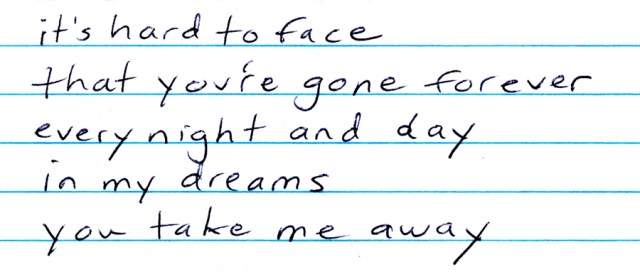 it's hard to face
that you're gone forever
every night and day
in my dreams
you take me away